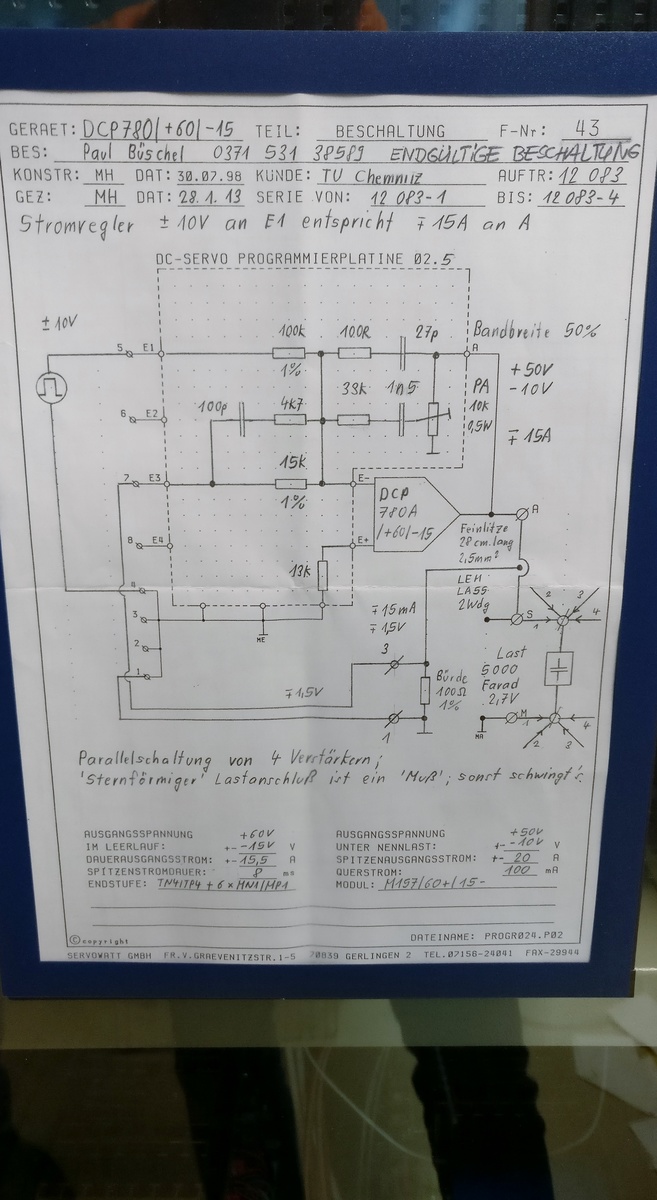 GERAET: DCP780/+60/-15 TEIL: BESCHALTUNG F-Nr: 43
BES: Paul Büschel 0371 531 38589 ENDGÜLTIGE BESCHALTUNG
KONSTR: MH DAT: 30.07.98 KUNDE: TU Chemnitz AUFTR: 12 083
GEZ: MH DAT: 28.1.13 SERIE VON: 12 083-1 BIS: 12 083-4
Stromregler ± 10V an E1 entspricht ∓ 15A an A
DC-SERVO PROGRAMMIERPLATINE 02.5
± 10V
5 E1
100k
1%
100R
27p
A
Bandbreite 50%
+50V
-10V
∓ 15A
6 E2
100p
4k7
33k
1n5
PA
10k
0,5W
7 E3
15k
1%
E-
DCP
780A
/+60/-15
A
8 E4
E+
13k
Feinlitze
28 cm lang
2,5mm²
LEM
LA55
2Wdg
4
3
2
1
ME
∓ 15mA
∓ 1,5V
3
S
1
2
3
4
∓ 1,5V
Bürde
100Ω
1%
1
Last
5000
Farad
2,7V
MA
M
1
2
3
4
Parallelschaltung von 4 Verstärkern;
'Sternförmiger' Lastanschluß ist ein 'Muß'; sonst schwingt's.
AUSGANGSSPANNUNG +60V
IM LEERLAUF: +- -15V V
DAUERAUSGANGSSTROM: +- 15,5 A
SPITZENSTROMDAUER: 8 ms
ENDSTUFE: TN4/TP4 + 6 x MN1/MP1
AUSGANGSSPANNUNG +50V
UNTER NENNLAST: +- -10V V
SPITZENAUSGANGSSTROM: +- 20 A
QUERSTROM: 100 mA
MODUL: M157/60+/15-
© copyright
DATEINAME: PROGR024.P02
SERVOWATT GMBH FR.V.GRAEVENITZSTR.1-5 70839 GERLINGEN 2 TEL.07156-24041 FAX-29944